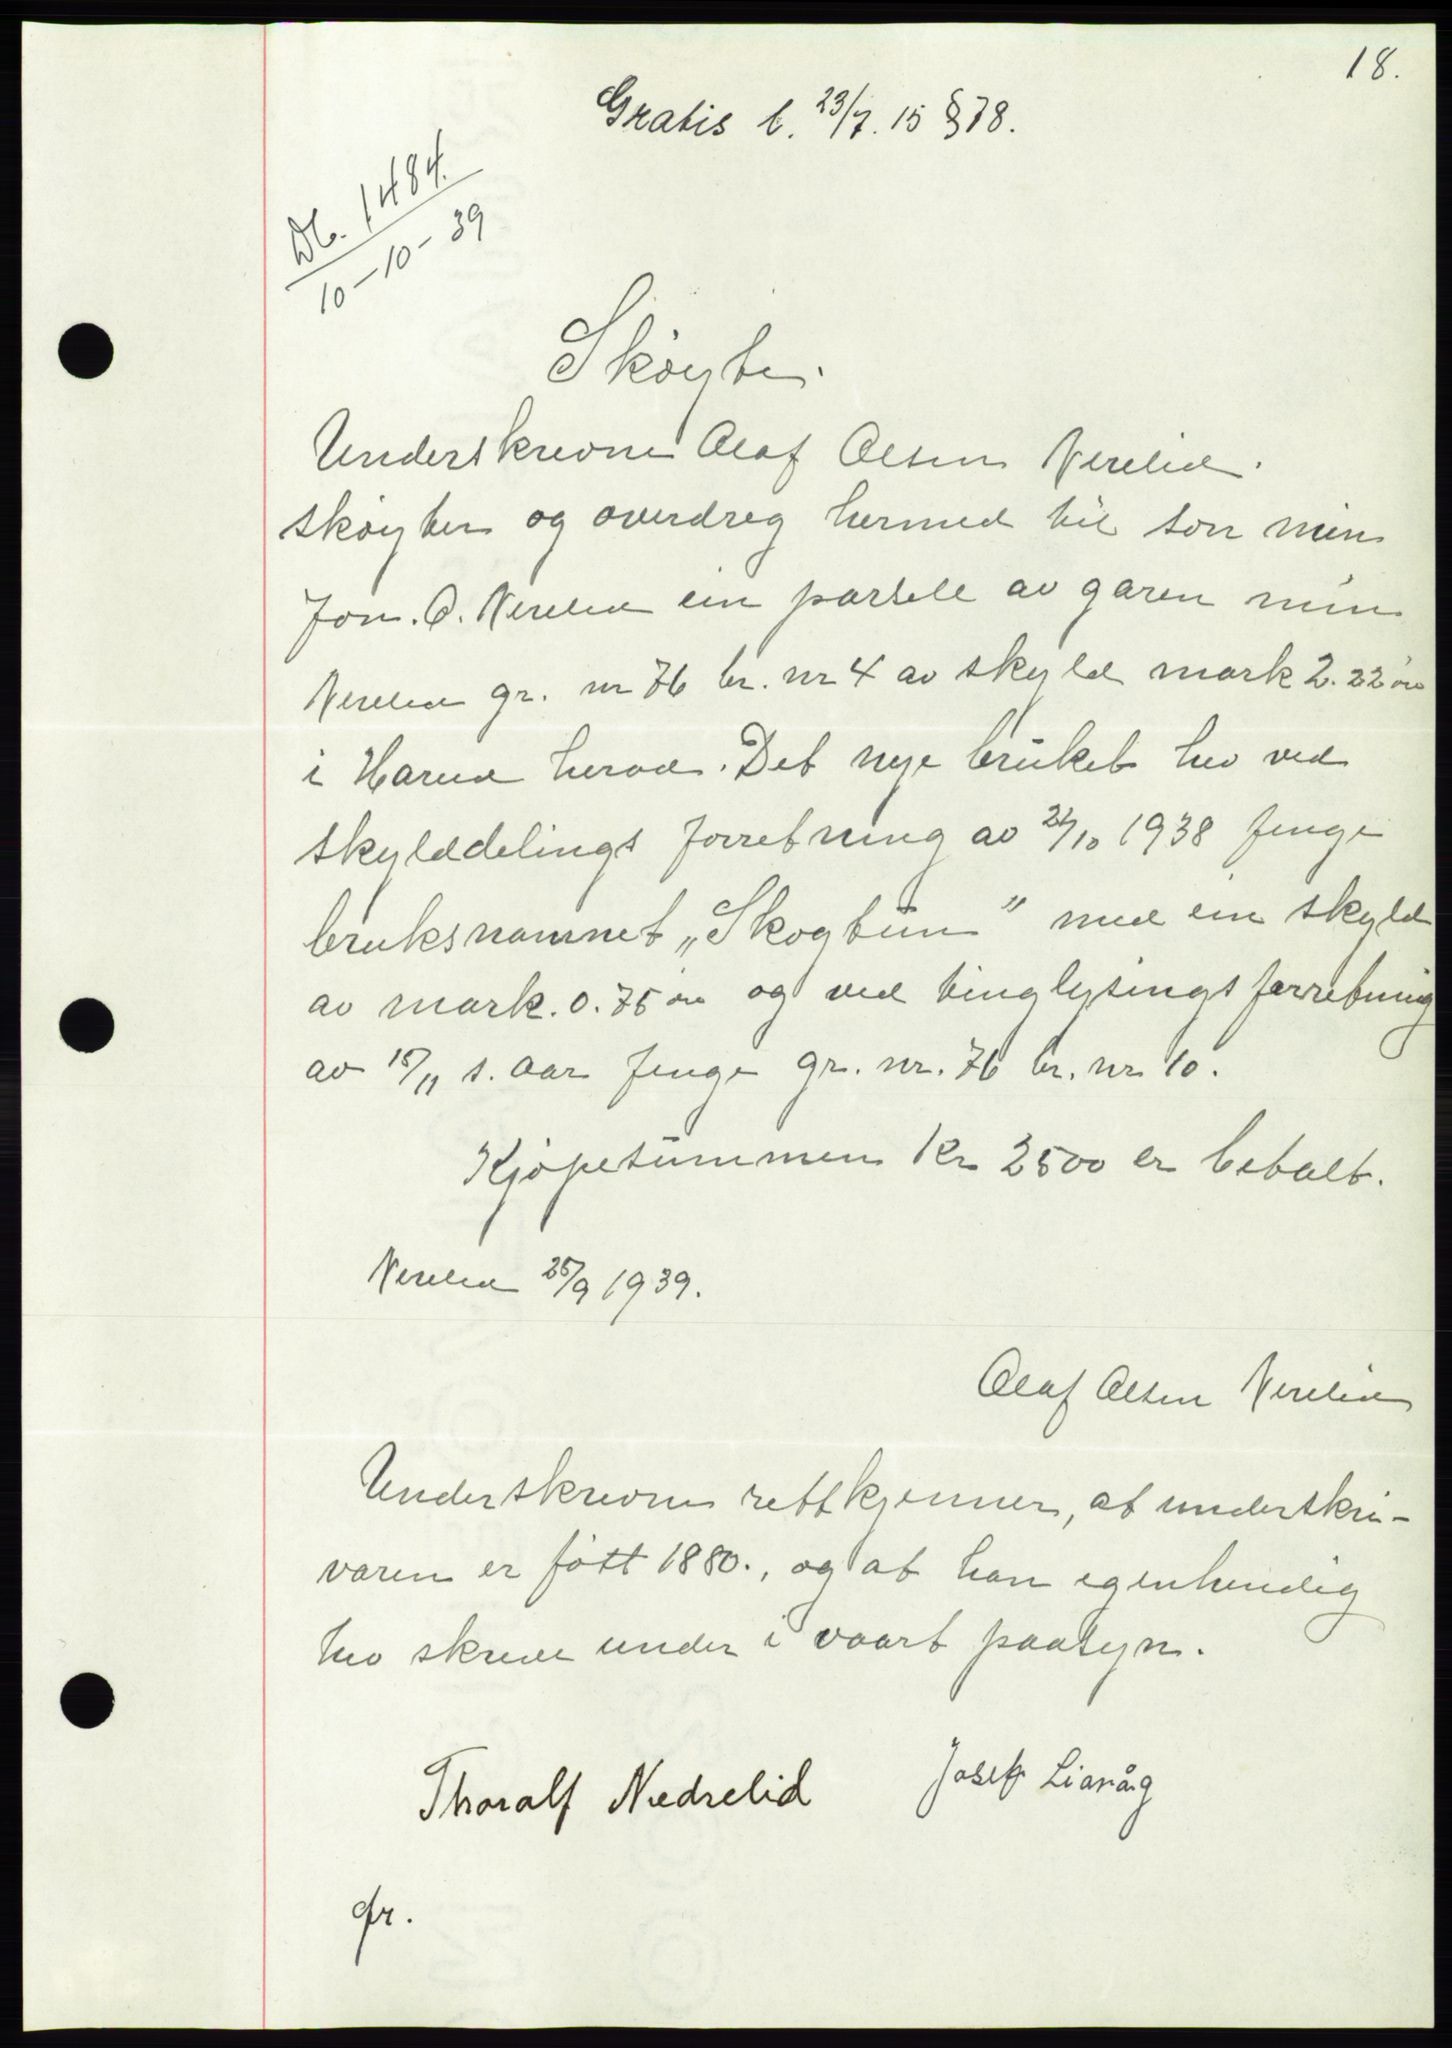 18.
Gratis l. 23/7. 15 § 78.
Db. 1484.
10-10-39
Skøyte.
Underskrevne Olaf Olsen Nerelid.
skøyter og overdreg hermed til son min
Jon. O. Nerelid ein parsell av garen min
Nerelid gr. nr 76 br. nr 4 av skyld mark 2.22 øre
i Hareid herad. Det nye bruket hev ved
skylddelings forretning av 21/10 1938 fenge
bruksnamnet „Skogtun" med ein skyld
av mark. 0.75 øre og ved tinglysingsforretning
av 15/11 s. aar fenge gr. nr. 76 br. nr 10.
Kjøpesummen Kr 2500 er betalt.
Nerelid 25/9 1939.
Olaf Olsen Nerelid
Underskrevne rettkjenner, at underskri-
varen er født 1880., og at han egenhendig
hev skreve under i vaart paasyn.
Thoralf Nedrelid Josef Liavåg
gr.